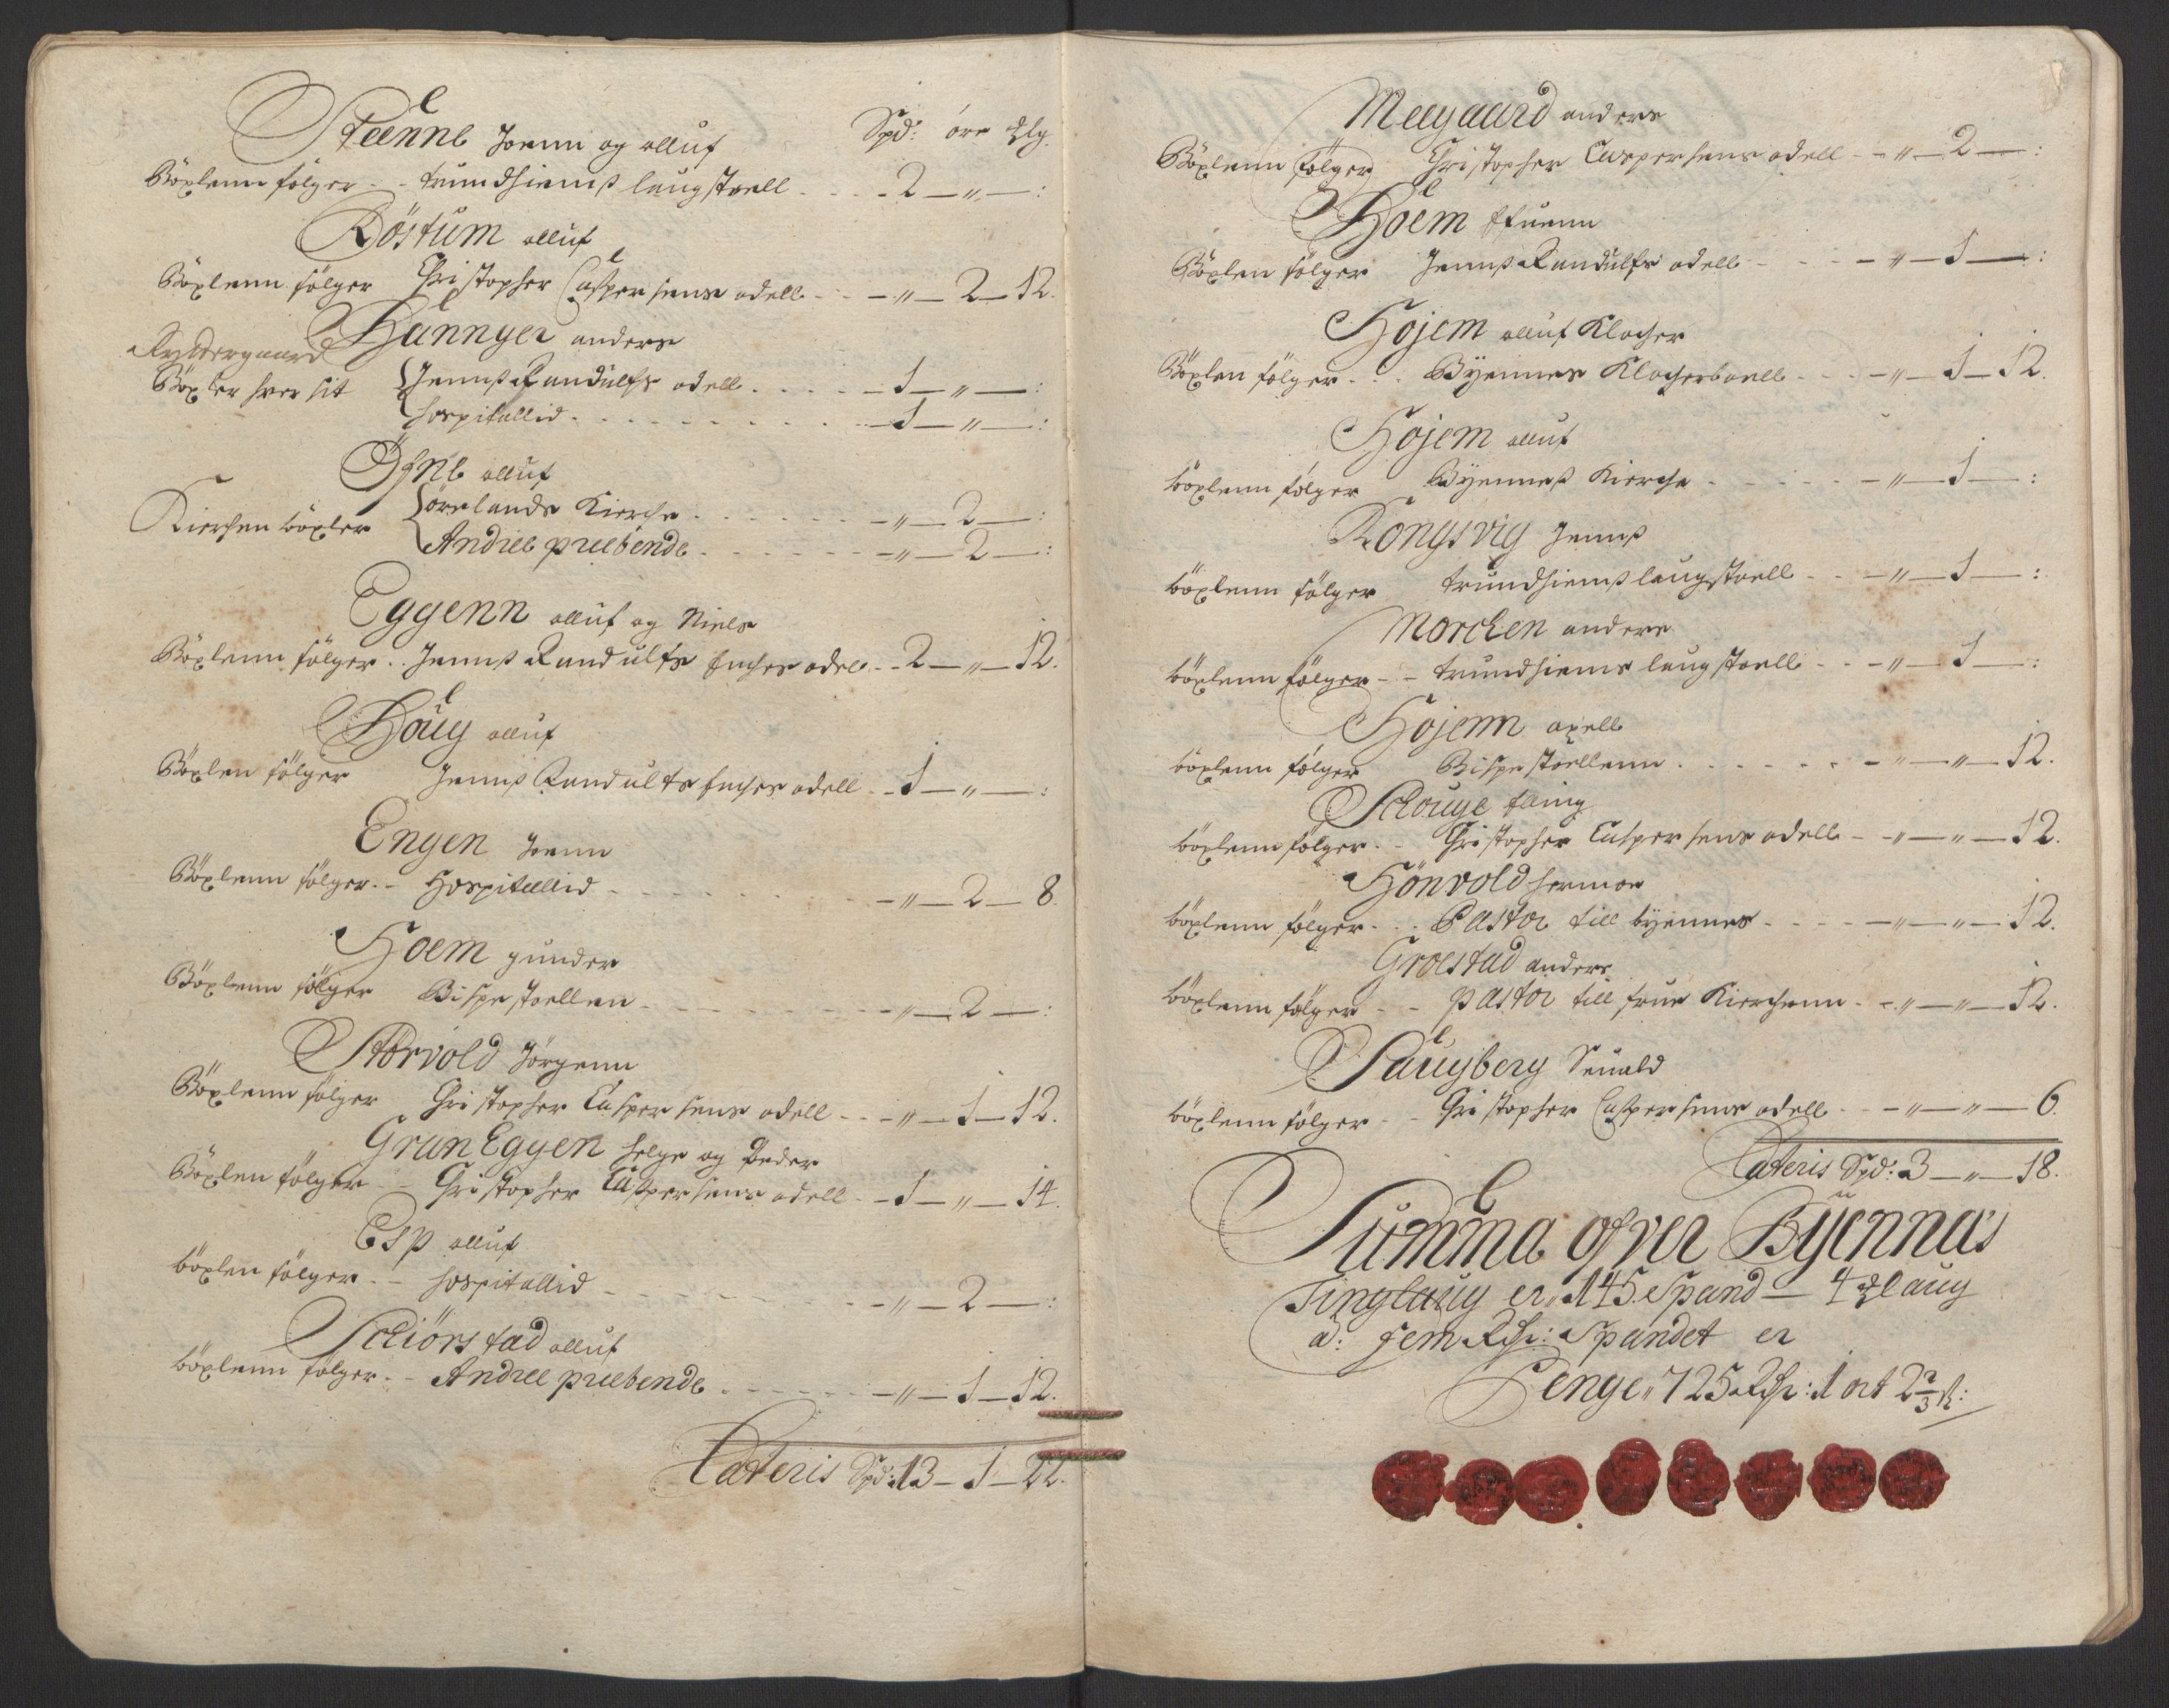 Steenne Joenn og olluf Spd: öre Mlg.
Böxlenn følger - - trundhiembs laugstoell - 2 - " - :
Röstum olluf
Böxlenn følger Christopher Caspersens odell - " - 2 - 12.
Hannger anders
Ryttergaard
Böxler hver sit Jennß Randulfs odell - 1 - " - :
Hospitallid - 1 - " - :
Öfne olluf
Kierchen böxler örelands Kierche - " - 2 - :
Andree præbende - " - 2 - :
Eggenn olluf og Niels
Böxlenn følger - - Jennß Randulfs odel - 2 - " - 12.
Houg olluf
Böxlen følger Jennß Randulfs odell - 1 - " - :
Engen Joenn
Böxlenn følger - - Hospitallid - " - 2 - 8.
Hoem gunder
Böxlenn følger Bispestoellen - " - 2 - :
Störvold Jörgenn
Böxlenn følger Christopher Caspersens odell - " - 1 - 12.
Gran Eggen Helge og Peder
Böxlen følger - - Christopher Caspersens odell - 1 - " - 14.
Esp olluf
böxlen følger - - Hospitallid - " - 2 - :
Schiörstad olluf
böxlenn følger - - Andree præbende - " - 1 - 12.
Lateris Spd: 13 - 1 - 22.
Meegaard anders
Böxlenn følger Christopher Caspersens odell - " - 2 - :
Hoem
Böxlen følger Jennß Randulfs odell - " - 1 - :
Hojem olluf Klocher
Böxlen følger - - Byennes Klocherboell - " - 1 - 12.
Hojem olluf
böxlenn følger Byenneß Kierche - " - 1 - :
Kongsvig Jennß
böxlenn følger trundhiembs laugstoell - " - 1 - :
Morchen anders
böxlenn følger - - trundhiems laugstoell - " - 1 - :
Hojem axell
böxlenn følger Bispestoellenn - " - " - 12.
Schouge
böxlenn følger - - Christopher Caspersens odell - " - " - 12.
Hönvold Hermoe
böxlenn følger - - Pastor till byennes - " - " - 12.
Groestad anders
böxlenn følger - - pastor till frue Kierchenn - " - " - 12.
Saugberg Seuald
böxlenn følger - - Christopher Caspersens odell - " - " - 6.
Lateris Spd: 3 - " - 18.
Summa ofver Byennas
Tinglaug er 145 Spand - 4 Mlaug
a: fem Rdr: Spandet er
Penge 725 Rdr: 1 ort 2 2/3 ß: